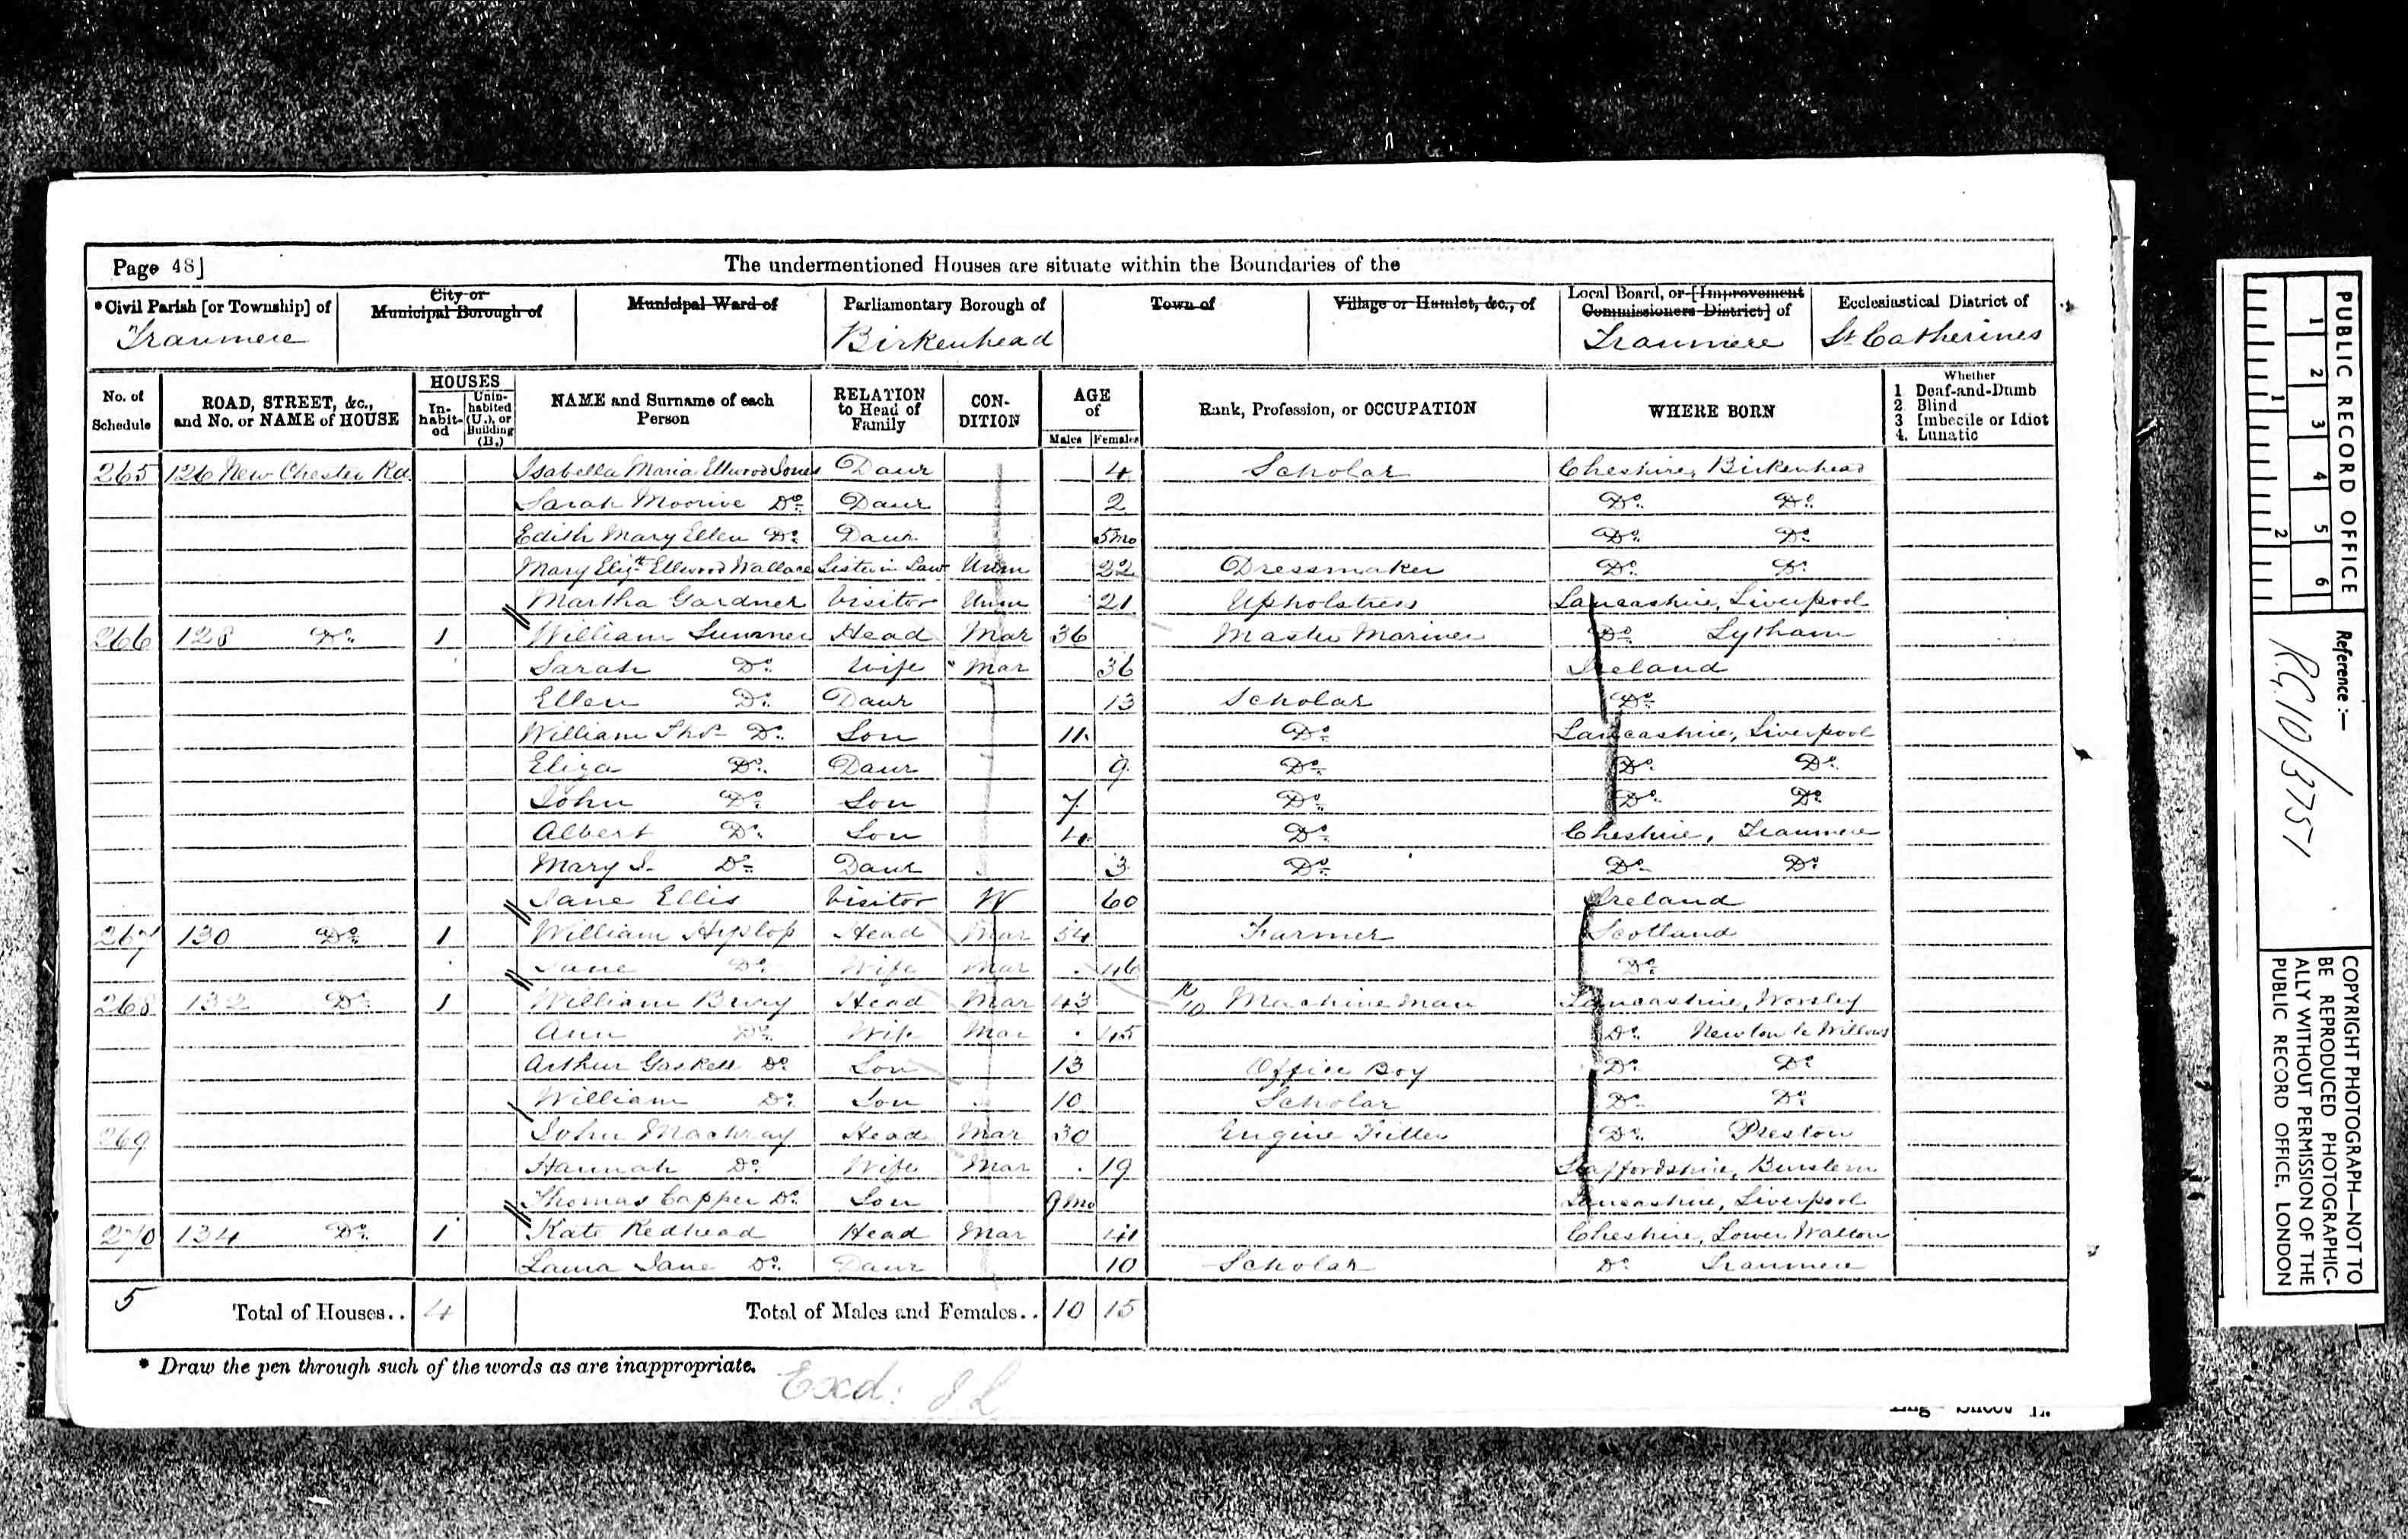 Page 48]
The undermentioned Houses are situate within the Boundaries of the
*Civil Parish [or Township] of
City or Municipal Borough of
Municipal Ward of
Parliamentary Borough of
Town of
Village or Hamlet, &c., of
Local Board, or [Improvement Commissioners District] of
Ecclesiastical District of
Tranmere Birkenhead Tranmere St Catherines
No. of Schedule
ROAD, STREET, &c., and No. or NAME of HOUSE
HOUSES
In-habit-ed
Unin-habited (U.), or Building (B.)
NAME and Surname of each Person
RELATION to Head of Family
CON-DITION
AGE of
Males Females
Rank, Profession, or OCCUPATION
WHERE BORN
Whether
1 Deaf-and-Dumb
2 Blind
3 Imbecile or Idiot
4. Lunatic
265 126 New Chester Rd Isabella Maria Ellwood Jones Daur 4 Scholar Cheshire, Birkenhead
Sarah Do Daur 2 Do Do
Edith Mary Ellen Do Daur 5mo Do Do
Mary Elizth Ellwood Wallace Sister in Law Unm 22 Dressmaker Do Do
Martha Gardner Visitor Unm 21 Upholstress Lancashire, Liverpool
266 128 Do 1 William Sumner Head Mar 36 Master Mariner Do Lytham
Sarah Do Wife Mar 36 Ireland
Ellen Do Daur 13 Scholar Do
William Thos Do Son 11 Do Lancashire, Liverpool
Eliza Do Daur 9 Do Do Do
John Do Son 7 Do Do Do
Albert Do Son 4 Do Cheshire, Tranmere
Mary J. Do Daur 3 Do Do Do
Jane Ellis Visitor W 60 Ireland
267 130 Do 1 William Hyslop Head Mar 54 Farmer Scotland
Jane Do Wife Mar 46 Do
268 132 Do 1 William Bury Head Mar 43 Machine Man Lancashire, Worsley
Ann Do Wife Mar 45 Do Newton le Willows
Arthur Gaskell Do Son 13 Office Boy Do Do
William Do Son 10 Scholar Do Do
269 John Machray Head Mar 30 Engine Fitter Do Preston
Hannah Do Wife Mar 19 Staffordshire, Burslem
Thomas Capper Do Son 9mo Lancashire, Liverpool
270 134 Do 1 Kate Redhead Head Mar 41 Cheshire, Lower Walton
Laura Jane Do Daur 10 Scholar Do Tranmere
5 Total of Houses.. 4 Total of Males and Females.. 10 15
* Draw the pen through such of the words as are inappropriate.
Exd: JL
Eng Sheet L.
PUBLIC RECORD OFFICE
1 2 3 4 5 6
1 2
Reference:-
R.G.10/3751
COPYRIGHT PHOTOGRAPH—NOT TO
BE REPRODUCED PHOTOGRAPHIC-
ALLY WITHOUT PERMISSION OF THE
PUBLIC RECORD OFFICE, LONDON